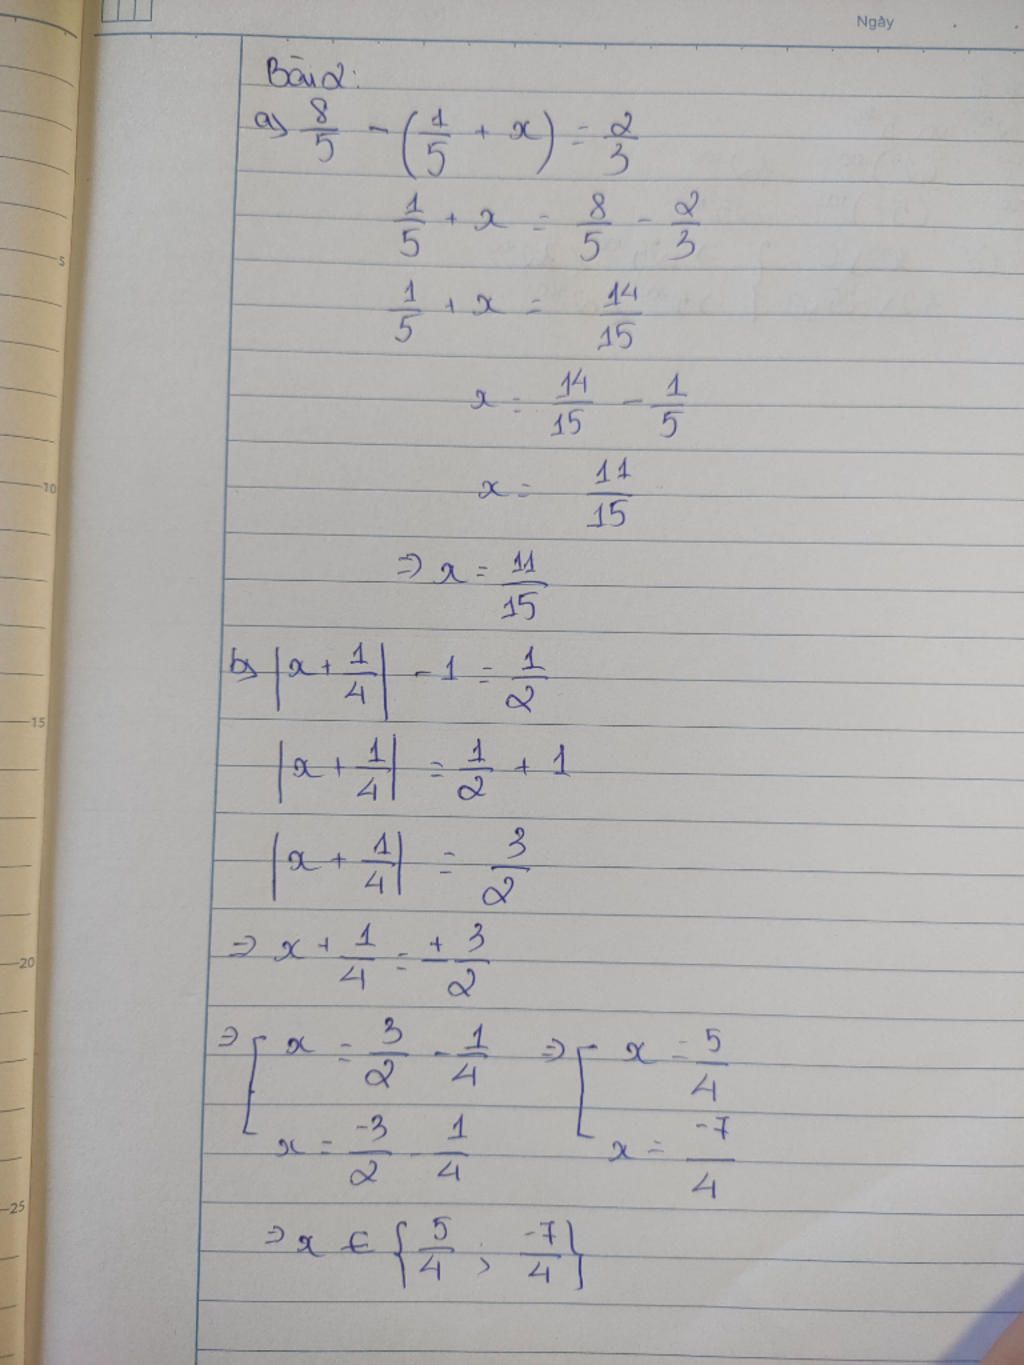 Ngày
Bài 2:
a) 8/5 - (1/5 + x) = 2/3
1/5 + x = 8/5 - 2/3
1/5 + x = 14/15
x = 14/15 - 1/5
x = 11/15
⇒ x = 11/15
b) |x + 1/4| - 1 = 1/2
|x + 1/4| = 1/2 + 1
|x + 1/4| = 3/2
⇒ x + 1/4 = ± 3/2
⇒ [ x = 3/2 - 1/4 ⇒ [ x = 5/4
x = -3/2 - 1/4 x = -7/4
⇒ x ∈ {5/4 ; -7/4}
5
10
15
20
25